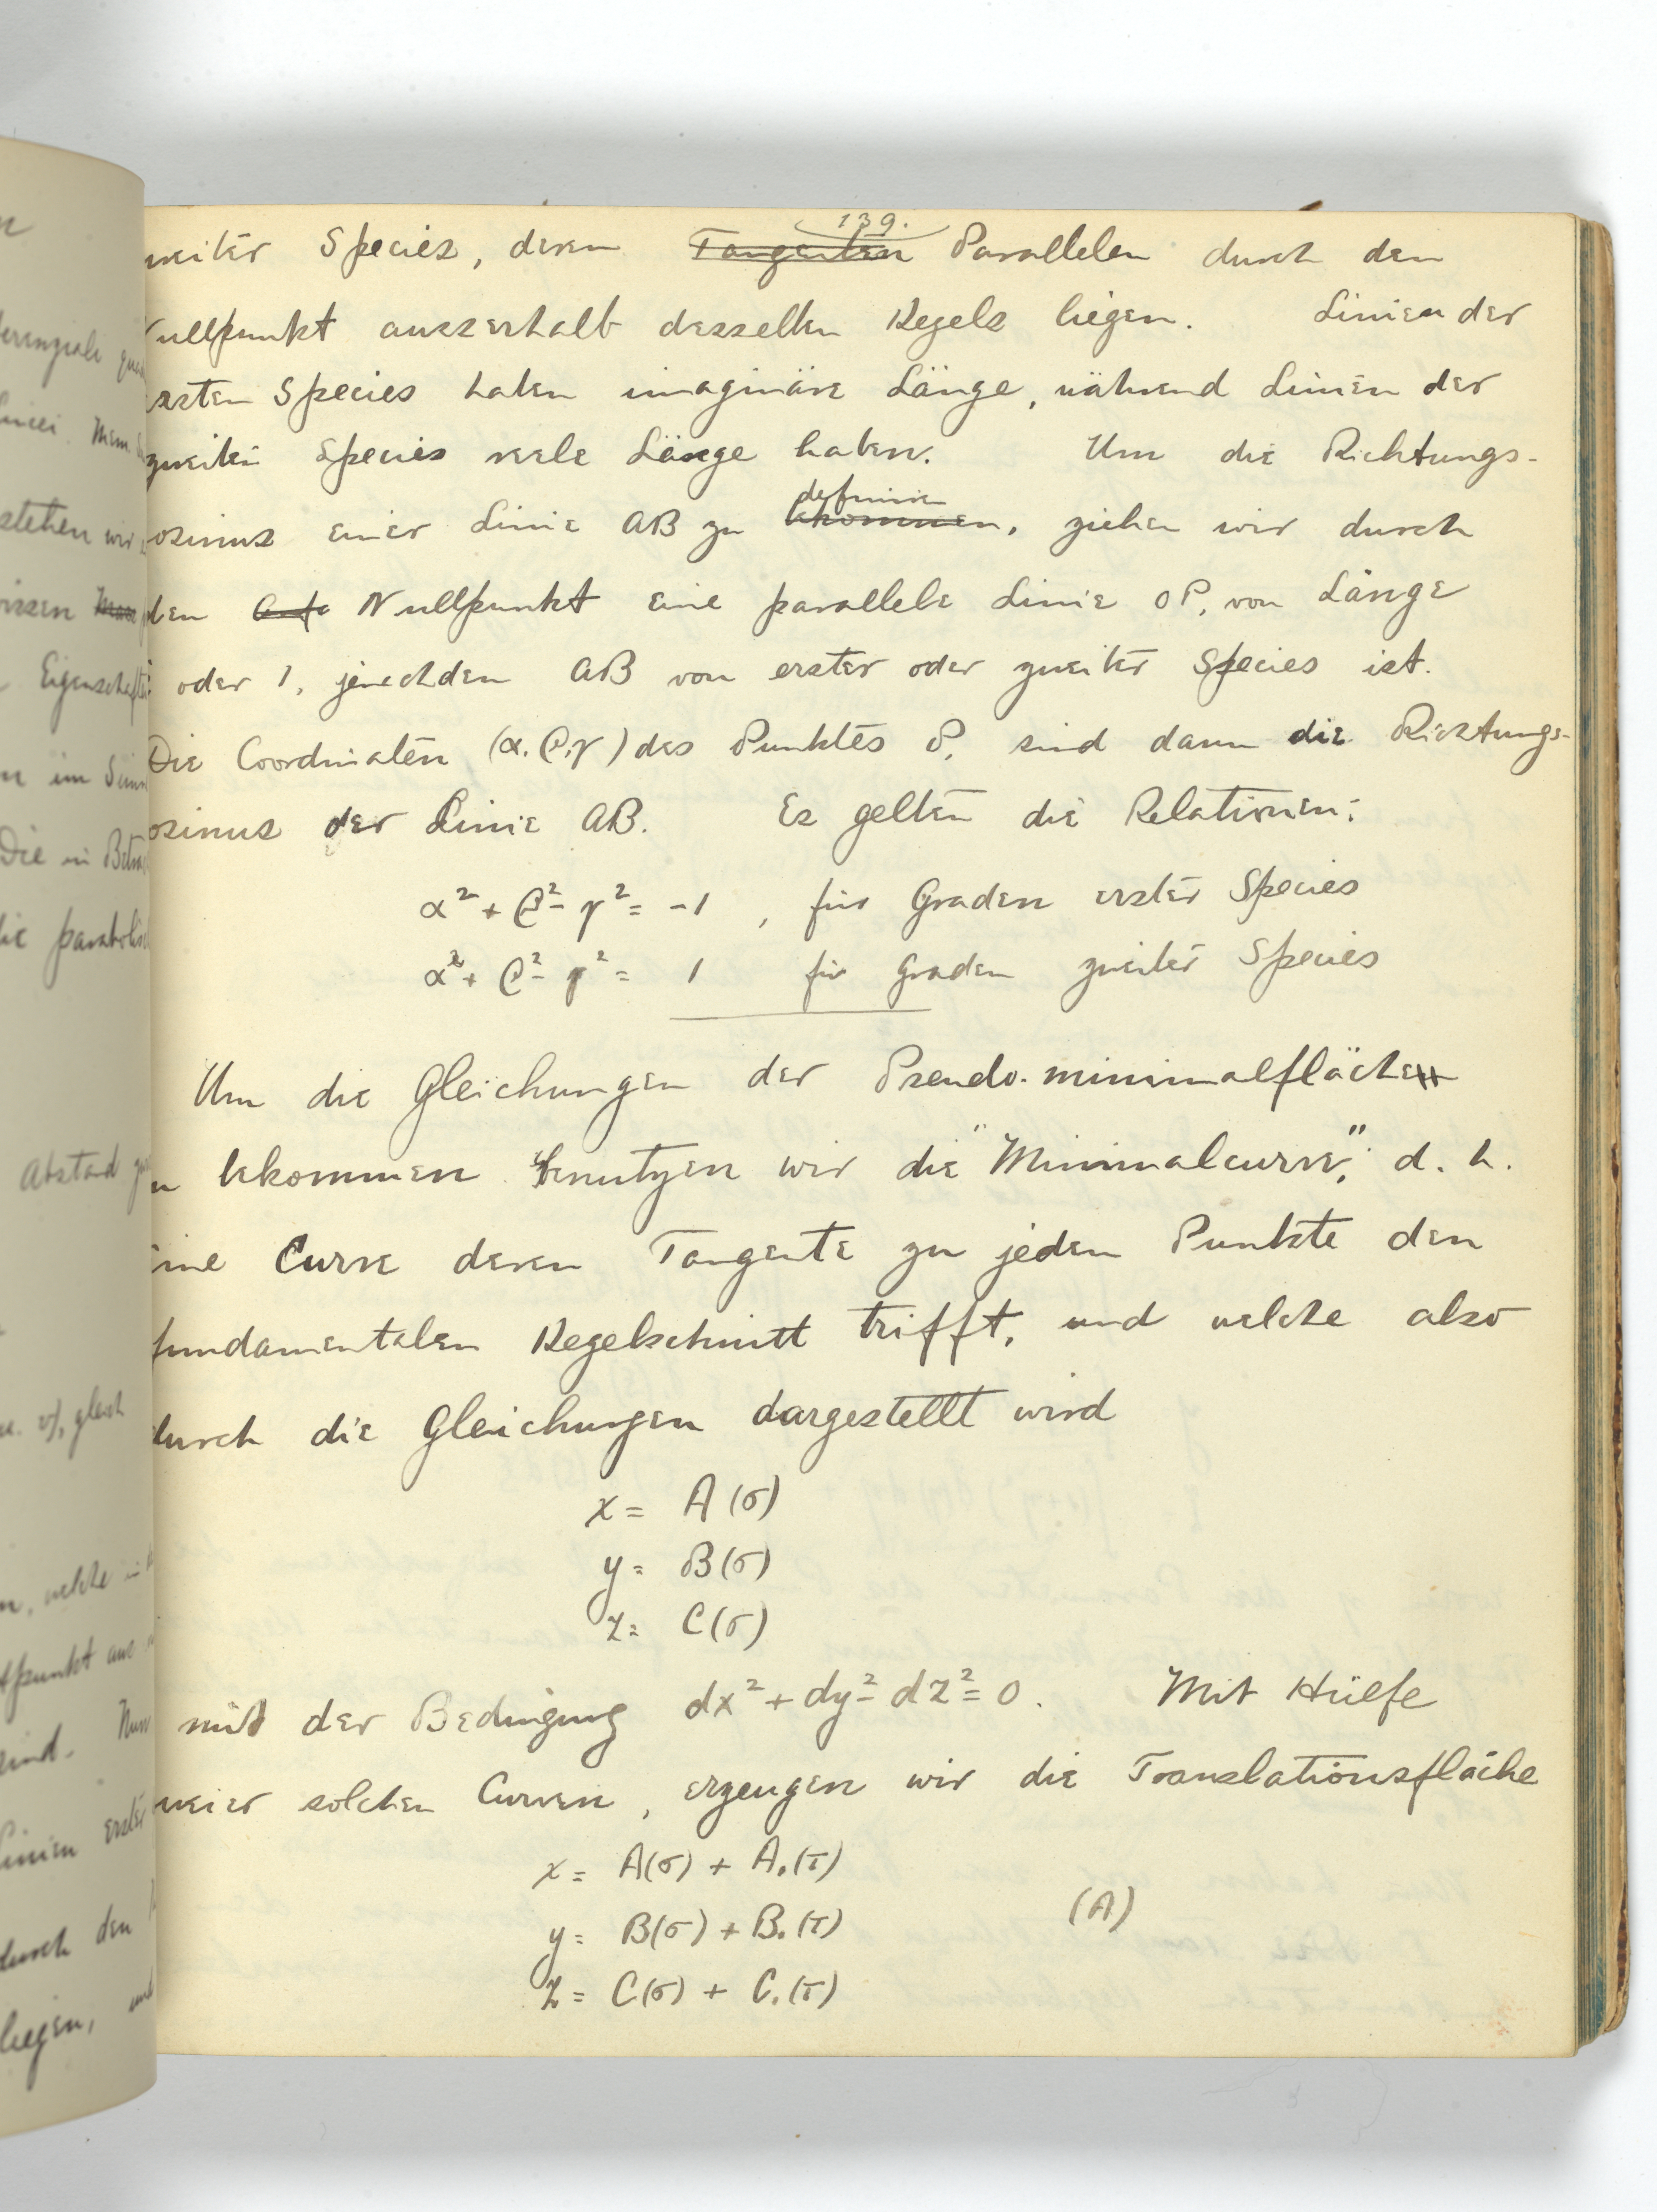 139.
zweiter Species, deren Tangenten Parallelen durch den
Nullpunkt ausserhalb desselben Kegels liegen. Linien der
ersten Species haben imaginäre Länge, während Linien der
zweiten Species reele Länge haben. Um die Richtungs-
cosinus einer Linie AB zu bekommen definiren, ziehen wir durch
den Nullpunkt eine parallele Linie OP, von Länge
i oder 1, jenachdem AB von erster oder zweiter Species ist.
Die Coordinaten (α, β, γ) des Punktes P, sind dann die Richtungs-
cosinus der Linie AB. Es gelten die Relationen:
α² + β² - γ² = -1, für Graden erster Species
α² + β² - γ² = 1 für Graden zweiter Species
Um die Gleichungen der Pseudo-minimalfläche
zu bekommen benutzen wir die "Minimalcurve", d. h.
eine Curve deren Tangente zu jeden Punkte den
fundamentalen Kegelschnitt trifft, und welche also
durch die Gleichungen dargestellt wird
x = A(σ)
y = B(σ)
z = C(σ)
mit der Bedingung dx² + dy² - dz² = 0. Mit Hülfe
zweier solchen Curven, erzeugen wir die Translationsfläche
x = A(σ) + A₁(τ)
y = B(σ) + B₁(τ) (A)
z = C(σ) + C₁(τ)